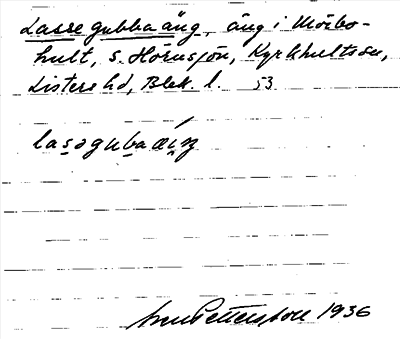 Lasse gubbaäng, äng i Mörbo-
hult, S. Hörnsjön, Kyrkhults sn,
Listers hd, Blek. l. 53
Sven Pettersson 1936